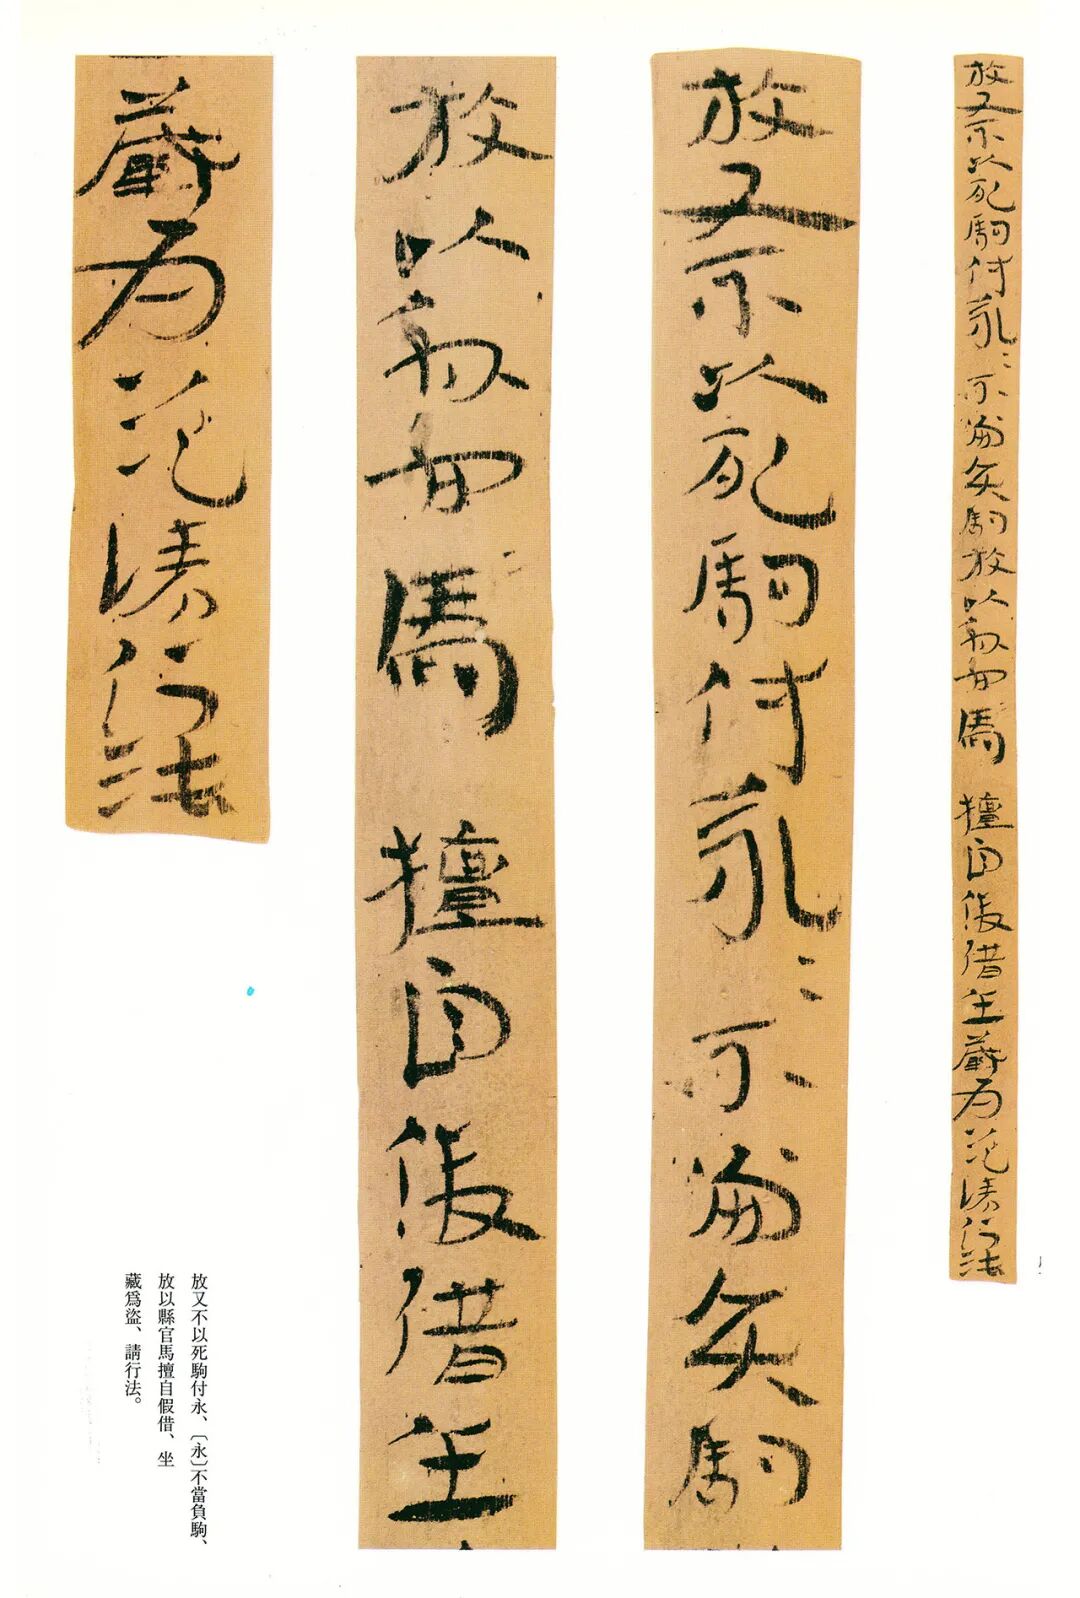 放又不以死駒付永=不當負駒放以縣官馬擅自假借坐藏為盜請行法
放又不以死駒付永=不當負駒
放以縣官馬擅自假借坐
藏為盜請行法
放又不以死駒付永、〔永〕不當負駒、
放以縣官馬擅自假借、坐
藏爲盜、請行法。